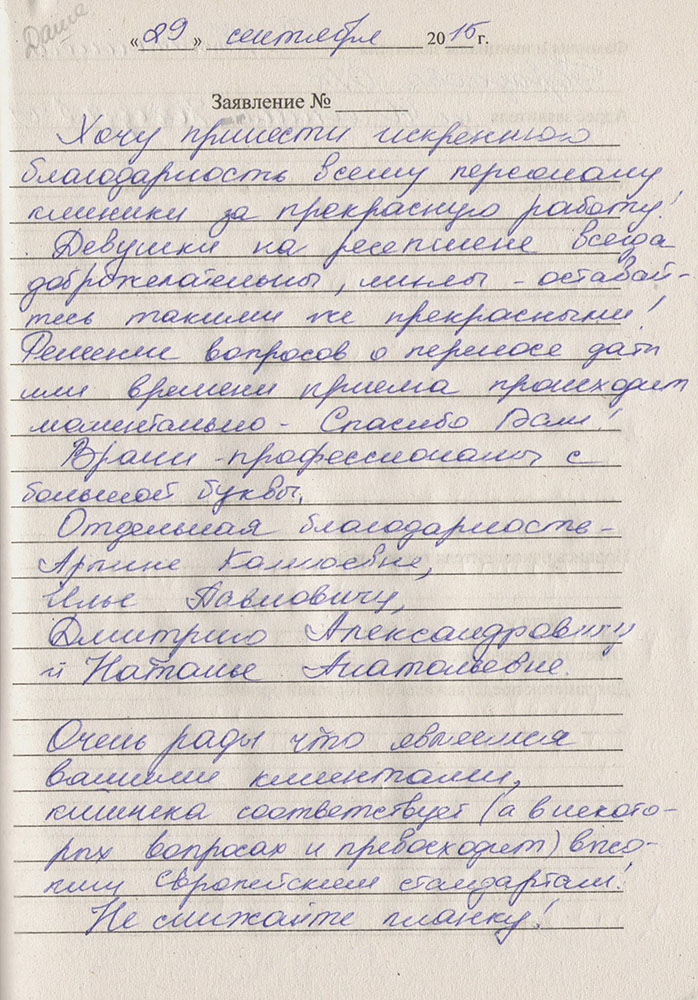 Даша
« 29 » сентября 2015 г.
Заявление №
Хочу принести искреннюю
благодарность всему персоналу
клиники за прекрасную работу!
Девушки на ресепшене всегда
доброжелательны, милы - оставай-
тесь такими же прекрасными!
Решение вопросов о переносе даты
или времени приема происходит
моментально - Спасибо Вам!
Врачи - профессионалы с
большой буквы.
Отдельная благодарность -
Арпине
Илье Павловичу,
Дмитрию Александровичу
и Наталье Анатольевне.
Очень рады что являемся
вашими клиентами,
клиника соответствует (а в некото-
рых вопросах и превосходит) высо-
ким Европейским стандартам!
Не снижайте планку!